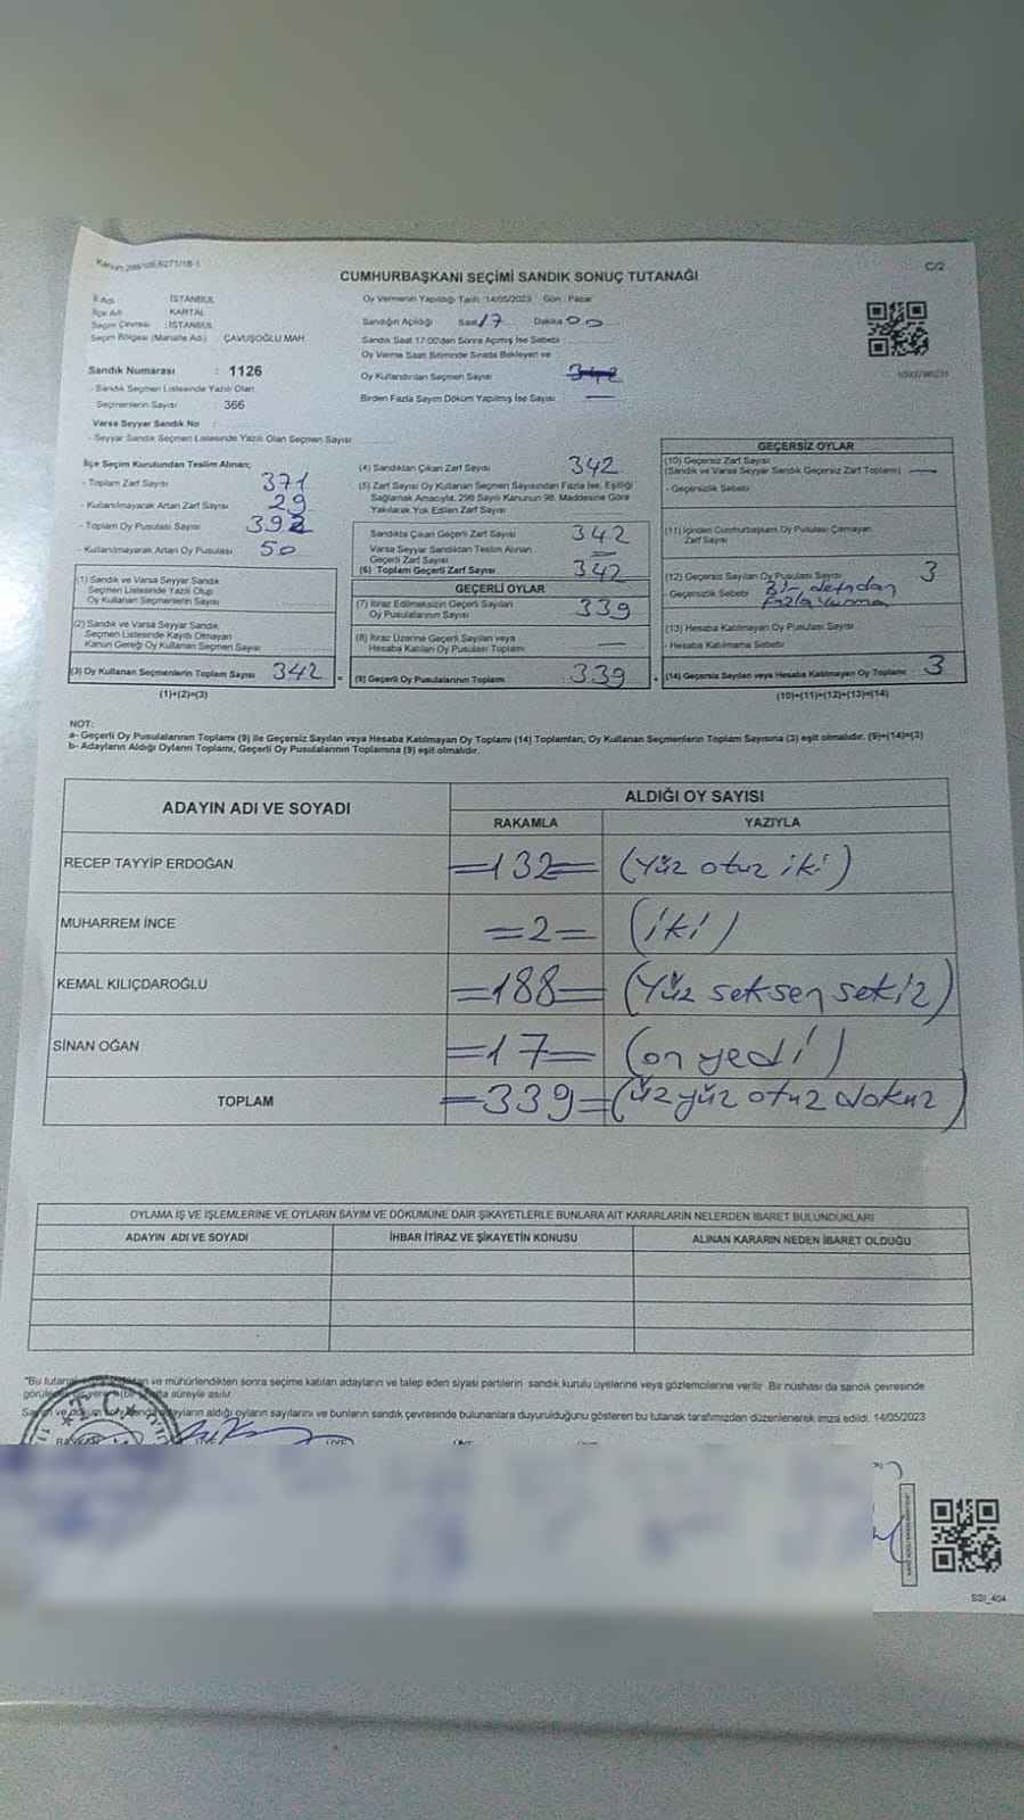 CUMHURBAŞKANI SEÇİMİ SANDIK SONUÇ TUTANAĞI
C/2
İl Adı : İSTANBUL
İlçe Adı : KARTAL
Seçim Çevresi : İSTANBUL
Seçim Bölgesi (Mahalle Adı) : ÇAVUŞOĞLU MAH.
Sandık Numarası : 1126
- Sandık Seçmen Listesinde Yazılı Olan
Seçmenlerin Sayısı : 366
Varsa Seyyar Sandık No :
- Seyyar Sandık Seçmen Listesinde Yazılı Olan Seçmen Sayısı
Oy Vermenin Yapıldığı Tarih : 14/05/2023 Gün : Pazar
Sandığın Açıldığı Saat 17 Dakika 00
Sandık Saat 17:00'den Sonra Açılmış İse Sebebi
Oy Verme Saati Bitiminde Sırada Bekleyen ve
Oy Kullandırılan Seçmen Sayısı 342
Birden Fazla Sayım Döküm Yapılmış İse Sayısı —
İlçe Seçim Kurulundan Teslim Alınan;
- Toplam Zarf Sayısı 371
- Kullanılmayarak Artan Zarf Sayısı 29
- Toplam Oy Pusulası Sayısı 392
- Kullanılmayarak Artan Oy Pusulası 50
(1) Sandık ve Varsa Seyyar Sandık
Seçmen Listesinde Yazılı Olup
Oy Kullanan Seçmenlerin Sayısı
(2) Sandık ve Varsa Seyyar Sandık
Seçmen Listesinde Kayıtlı Olmayan
Kanun Gereği Oy Kullanan Seçmen Sayısı
(3) Oy Kullanan Seçmenlerin Toplam Sayısı 342
(1)+(2)=(3)
(4) Sandıktan Çıkan Zarf Sayısı 342
(5) Zarf Sayısı Oy Kullanan Seçmen Sayısından Fazla İse, Eşitliği
Sağlamak Amacıyla, 298 Sayılı Kanunun 98. Maddesine Göre
Yakılarak Yok Edilen Zarf Sayısı
Sandıkta Çıkan Geçerli Zarf Sayısı 342
Varsa Seyyar Sandıktan Teslim Alınan
Geçerli Zarf Sayısı —
(6) Toplam Geçerli Zarf Sayısı 342
GEÇERLİ OYLAR
(7) İtiraz Edilmeksizin Geçerli Sayılan
Oy Pusulalarının Sayısı 339
(8) İtiraz Üzerine Geçerli Sayılan veya
Hesaba Katılan Oy Pusulası Toplamı —
(9) Geçerli Oy Pusulalarının Toplamı 339
GEÇERSİZ OYLAR
(10) Geçersiz Zarf Sayısı
(Sandık ve Varsa Seyyar Sandık Geçersiz Zarf Toplamı) —
- Geçersizlik Sebebi
(11) İçinden Cumhurbaşkanı Oy Pusulası Çıkmayan
Zarf Sayısı
(12) Geçersiz Sayılan Oy Pusulası Sayısı 3
Geçersizlik Sebebi
(13) Hesaba Katılmayan Oy Pusulası Sayısı
- Hesaba Katılmama Sebebi
(14) Geçersiz Sayılan veya Hesaba Katılmayan Oy Toplamı 3
(10)+(11)+(12)+(13)=(14)
NOT:
a- Geçerli Oy Pusulalarının Toplamı (9) ile Geçersiz Sayılan veya Hesaba Katılmayan Oy Toplamı (14) Toplamları, Oy Kullanan Seçmenlerin Toplam Sayısına (3) eşit olmalıdır. (9)+(14)=(3)
b- Adayların Aldığı Oyların Toplamı, Geçerli Oy Pusulalarının Toplamına (9) eşit olmalıdır.
ADAYIN ADI VE SOYADI
ALDIĞI OY SAYISI
RAKAMLA YAZIYLA
RECEP TAYYİP ERDOĞAN =132= (Yüz otuz iki)
MUHARREM İNCE =2= (iki)
KEMAL KILIÇDAROĞLU =188= (Yüz seksen sekiz)
SİNAN OĞAN =17= (on yedi)
TOPLAM =339= (üz yüz otuz dokuz)
OYLAMA İŞ VE İŞLEMLERİNE VE OYLARIN SAYIM VE DÖKÜMÜNE DAİR ŞİKAYETLERLE BUNLARA AİT KARARLARIN NELERDEN İBARET BULUNDUKLARI
ADAYIN ADI VE SOYADI İHBAR İTİRAZ VE ŞİKAYETİN KONUSU ALINAN KARARIN NEDEN İBARET OLDUĞU
ve mühürlendikten sonra seçime katılan adayların ve talep eden siyasi partilerin sandık kurulu üyelerine veya gözlemcilerine verilir. Bir nüshası da sandık çevresinde
süreyle asılır.
aldığı oyların sayılarını ve bunların sandık çevresinde bulunanlara duyurulduğunu gösteren bu tutanak tarafımızdan düzenlenerek imza edildi. 14/05/2023
T.C.